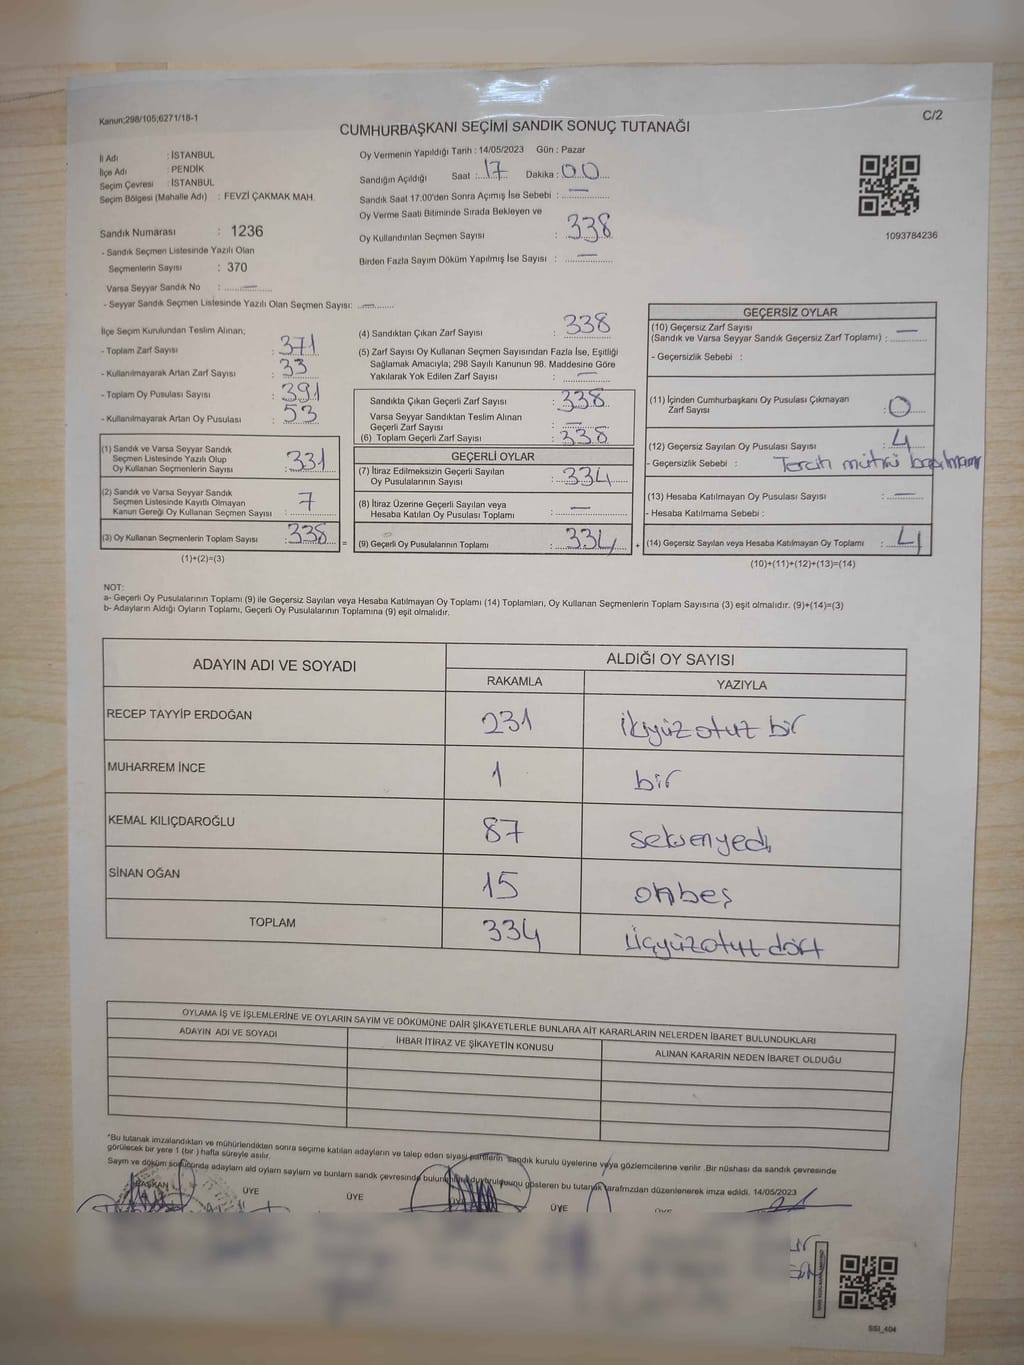 Kanun;298/105;6271/18-1
C/2
CUMHURBAŞKANI SEÇİMİ SANDIK SONUÇ TUTANAĞI
İl Adı : İSTANBUL
İlçe Adı : PENDİK
Seçim Çevresi : İSTANBUL
Seçim Bölgesi (Mahalle Adı) : FEVZİ ÇAKMAK MAH.
Sandık Numarası : 1236
- Sandık Seçmen Listesinde Yazılı Olan
Seçmenlerin Sayısı : 370
Varsa Seyyar Sandık No : —
- Seyyar Sandık Seçmen Listesinde Yazılı Olan Seçmen Sayısı: —
Oy Vermenin Yapıldığı Tarih : 14/05/2023 Gün : Pazar
Sandığın Açıldığı Saat : 17 Dakika : 00
Sandık Saat 17.00'den Sonra Açımış İse Sebebi : —
Oy Verme Saati Bitiminde Sırada Bekleyen ve
Oy Kullandırılan Seçmen Sayısı : 338
Birden Fazla Sayım Döküm Yapılmış İse Sayısı : —
1093784236
İlçe Seçim Kurulundan Teslim Alınan;
- Toplam Zarf Sayısı : 371
- Kullanılmayarak Artan Zarf Sayısı : 33
- Toplam Oy Pusulası Sayısı : 391
- Kullanılmayarak Artan Oy Pusulası : 53
(1) Sandık ve Varsa Seyyar Sandık
Seçmen Listesinde Yazılı Olup
Oy Kullanan Seçmenlerin Sayısı : 331
(2) Sandık ve Varsa Seyyar Sandık
Seçmen Listesinde Kayıtlı Olmayan
Kanun Gereği Oy Kullanan Seçmen Sayısı : 7
(3) Oy Kullanan Seçmenlerin Toplam Sayısı : 338
(1)+(2)=(3)
(4) Sandıktan Çıkan Zarf Sayısı : 338
(5) Zarf Sayısı Oy Kullanan Seçmen Sayısından Fazla İse, Eşitliği
Sağlamak Amacıyla; 298 Sayılı Kanunun 98. Maddesine Göre
Yakılarak Yok Edilen Zarf Sayısı : —
Sandıkta Çıkan Geçerli Zarf Sayısı : 338
Varsa Seyyar Sandıktan Teslim Alınan
Geçerli Zarf Sayısı : —
(6) Toplam Geçerli Zarf Sayısı : 338
GEÇERLİ OYLAR
(7) İtiraz Edilmeksizin Geçerli Sayılan
Oy Pusulalarının Sayısı : 334
(8) İtiraz Üzerine Geçerli Sayılan veya
Hesaba Katılan Oy Pusulası Toplamı : —
= (9) Geçerli Oy Pusulalarının Toplamı : 334 +
GEÇERSİZ OYLAR
(10) Geçersiz Zarf Sayısı
(Sandık ve Varsa Seyyar Sandık Geçersiz Zarf Toplamı) : —
- Geçersizlik Sebebi :
(11) İçinden Cumhurbaşkanı Oy Pusulası Çıkmayan
Zarf Sayısı : 0
(12) Geçersiz Sayılan Oy Pusulası Sayısı : 4
- Geçersizlik Sebebi : Tercih mührü basılmamış
(13) Hesaba Katılmayan Oy Pusulası Sayısı : —
- Hesaba Katılmama Sebebi :
(14) Geçersiz Sayılan veya Hesaba Katılmayan Oy Toplamı : 4
(10)+(11)+(12)+(13)=(14)
NOT:
a- Geçerli Oy Pusulalarının Toplamı (9) ile Geçersiz Sayılan veya Hesaba Katılmayan Oy Toplamı (14) Toplamları, Oy Kullanan Seçmenlerin Toplam Sayısına (3) eşit olmalıdır. (9)+(14)=(3)
b- Adayların Aldığı Oyların Toplamı, Geçerli Oy Pusulalarının Toplamına (9) eşit olmalıdır.
ADAYIN ADI VE SOYADI
ALDIĞI OY SAYISI
RAKAMLA YAZIYLA
RECEP TAYYİP ERDOĞAN 231 ikiyüzotuz bir
MUHARREM İNCE 1 bir
KEMAL KILIÇDAROĞLU 87 seksenyedi
SİNAN OĞAN 15 onbeş
TOPLAM 334 üçyüzotuz dört
OYLAMA İŞ VE İŞLEMLERİNE VE OYLARIN SAYIM VE DÖKÜMÜNE DAİR ŞİKAYETLERLE BUNLARA AİT KARARLARIN NELERDEN İBARET BULUNDUKLARI
ADAYIN ADI VE SOYADI İHBAR İTİRAZ VE ŞİKAYETİN KONUSU ALINAN KARARIN NEDEN İBARET OLDUĞU
"Bu tutanak imzalandıktan ve mühürlendikten sonra seçime katılan adayların ve talep eden siyasi partilerin sandık kurulu üyelerine veya gözlemcilerine verilir .Bir nüshası da sandık çevresinde
görülecek bir yere 1 (bir ) hafta süreyle asılır.
Sayım ve döküm sonucunda adayların ald oyların sayların ve bunların sandık çevresinde duyurulduğunu gösteren bu tutanak tarafmzdan düzenlenerek imza edildi. 14/05/2023
BAŞKAN ÜYE ÜYE ÜYE ÜYE
SSI_404